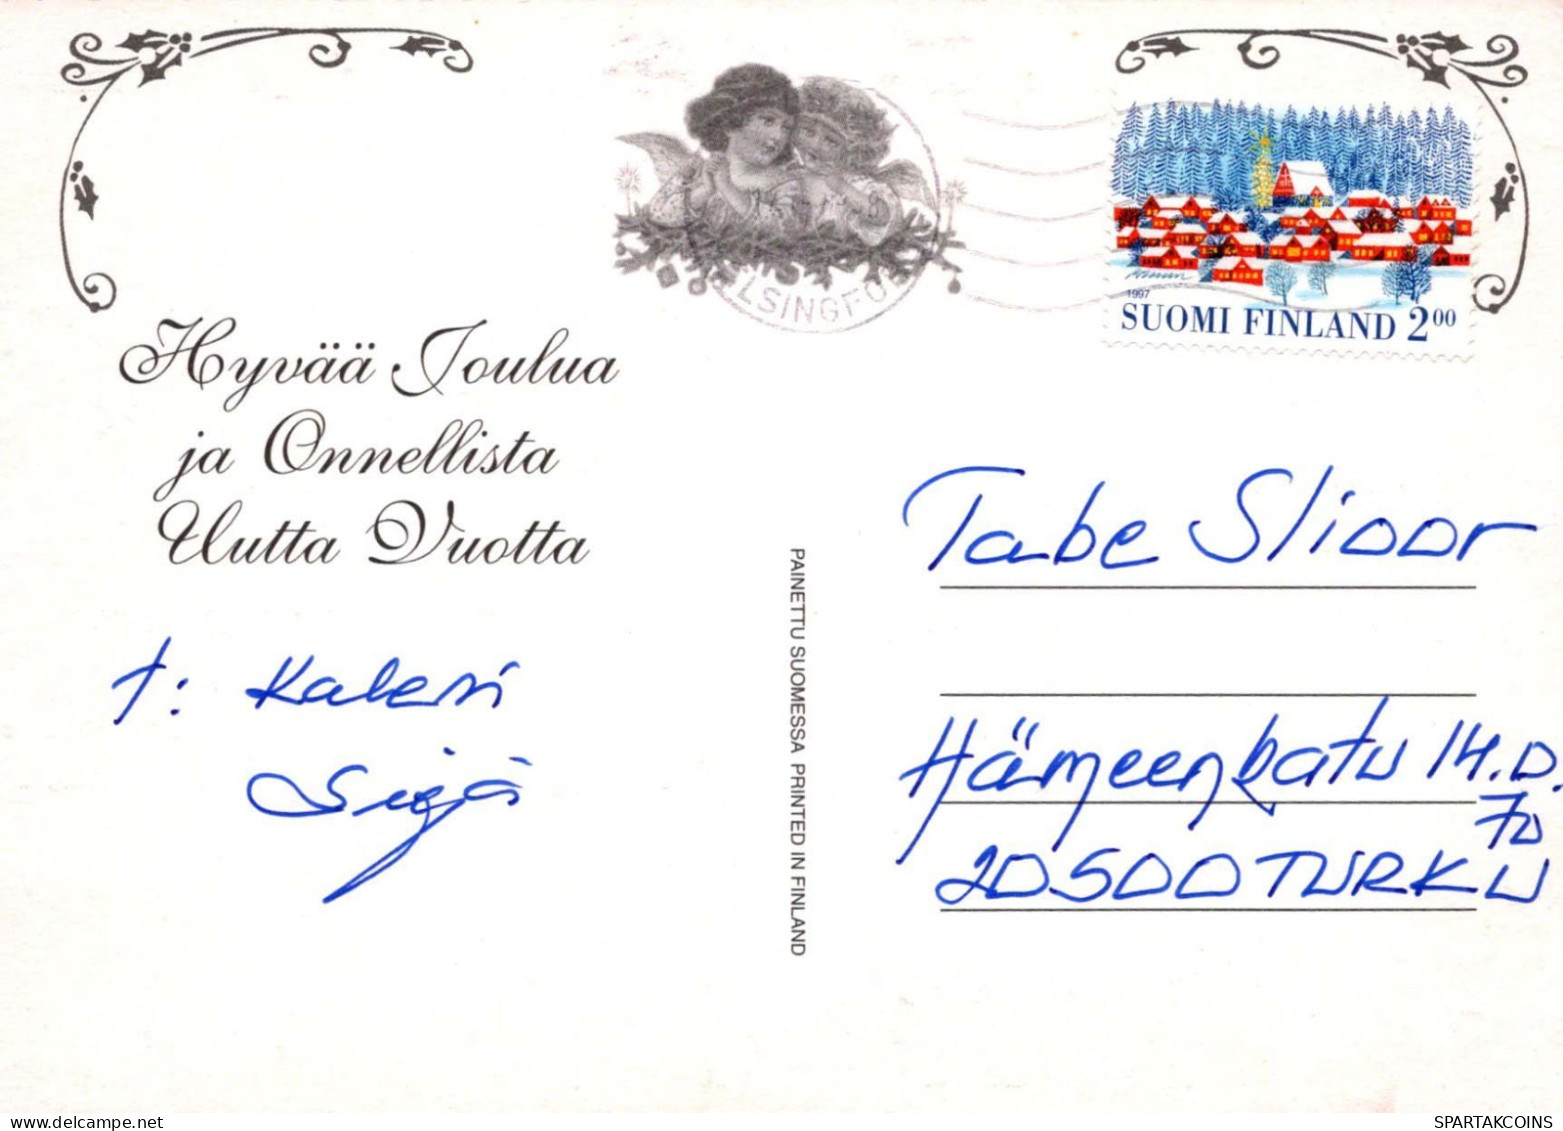 LSINGFO
1997
SUOMI FINLAND 2 00
Hyvää Joulua
ja Onnellista
Uutta Vuotta
T: Kalervi
Sirja
PAINETTU SUOMESSA PRINTED IN FINLAND
Tabe Slioor
Hämeenkatu 14.D.
70
20500 TURKU
SPARTAKCOINS